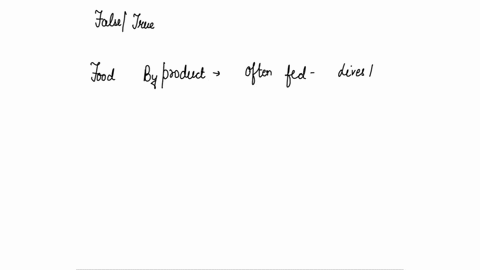 False/ True
Food By/product → often fed - lives/